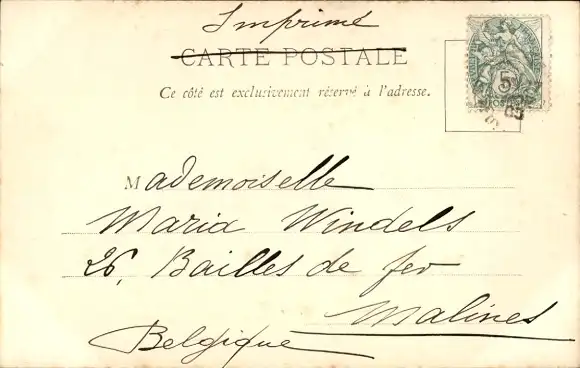 Imprimé
CARTE POSTALE
Ce côté est exclusivement réservé à l'adresse.
5
POSTES
03
Mademoiselle
Maria Windels
26, Bailles de fer
Malines
Belgique